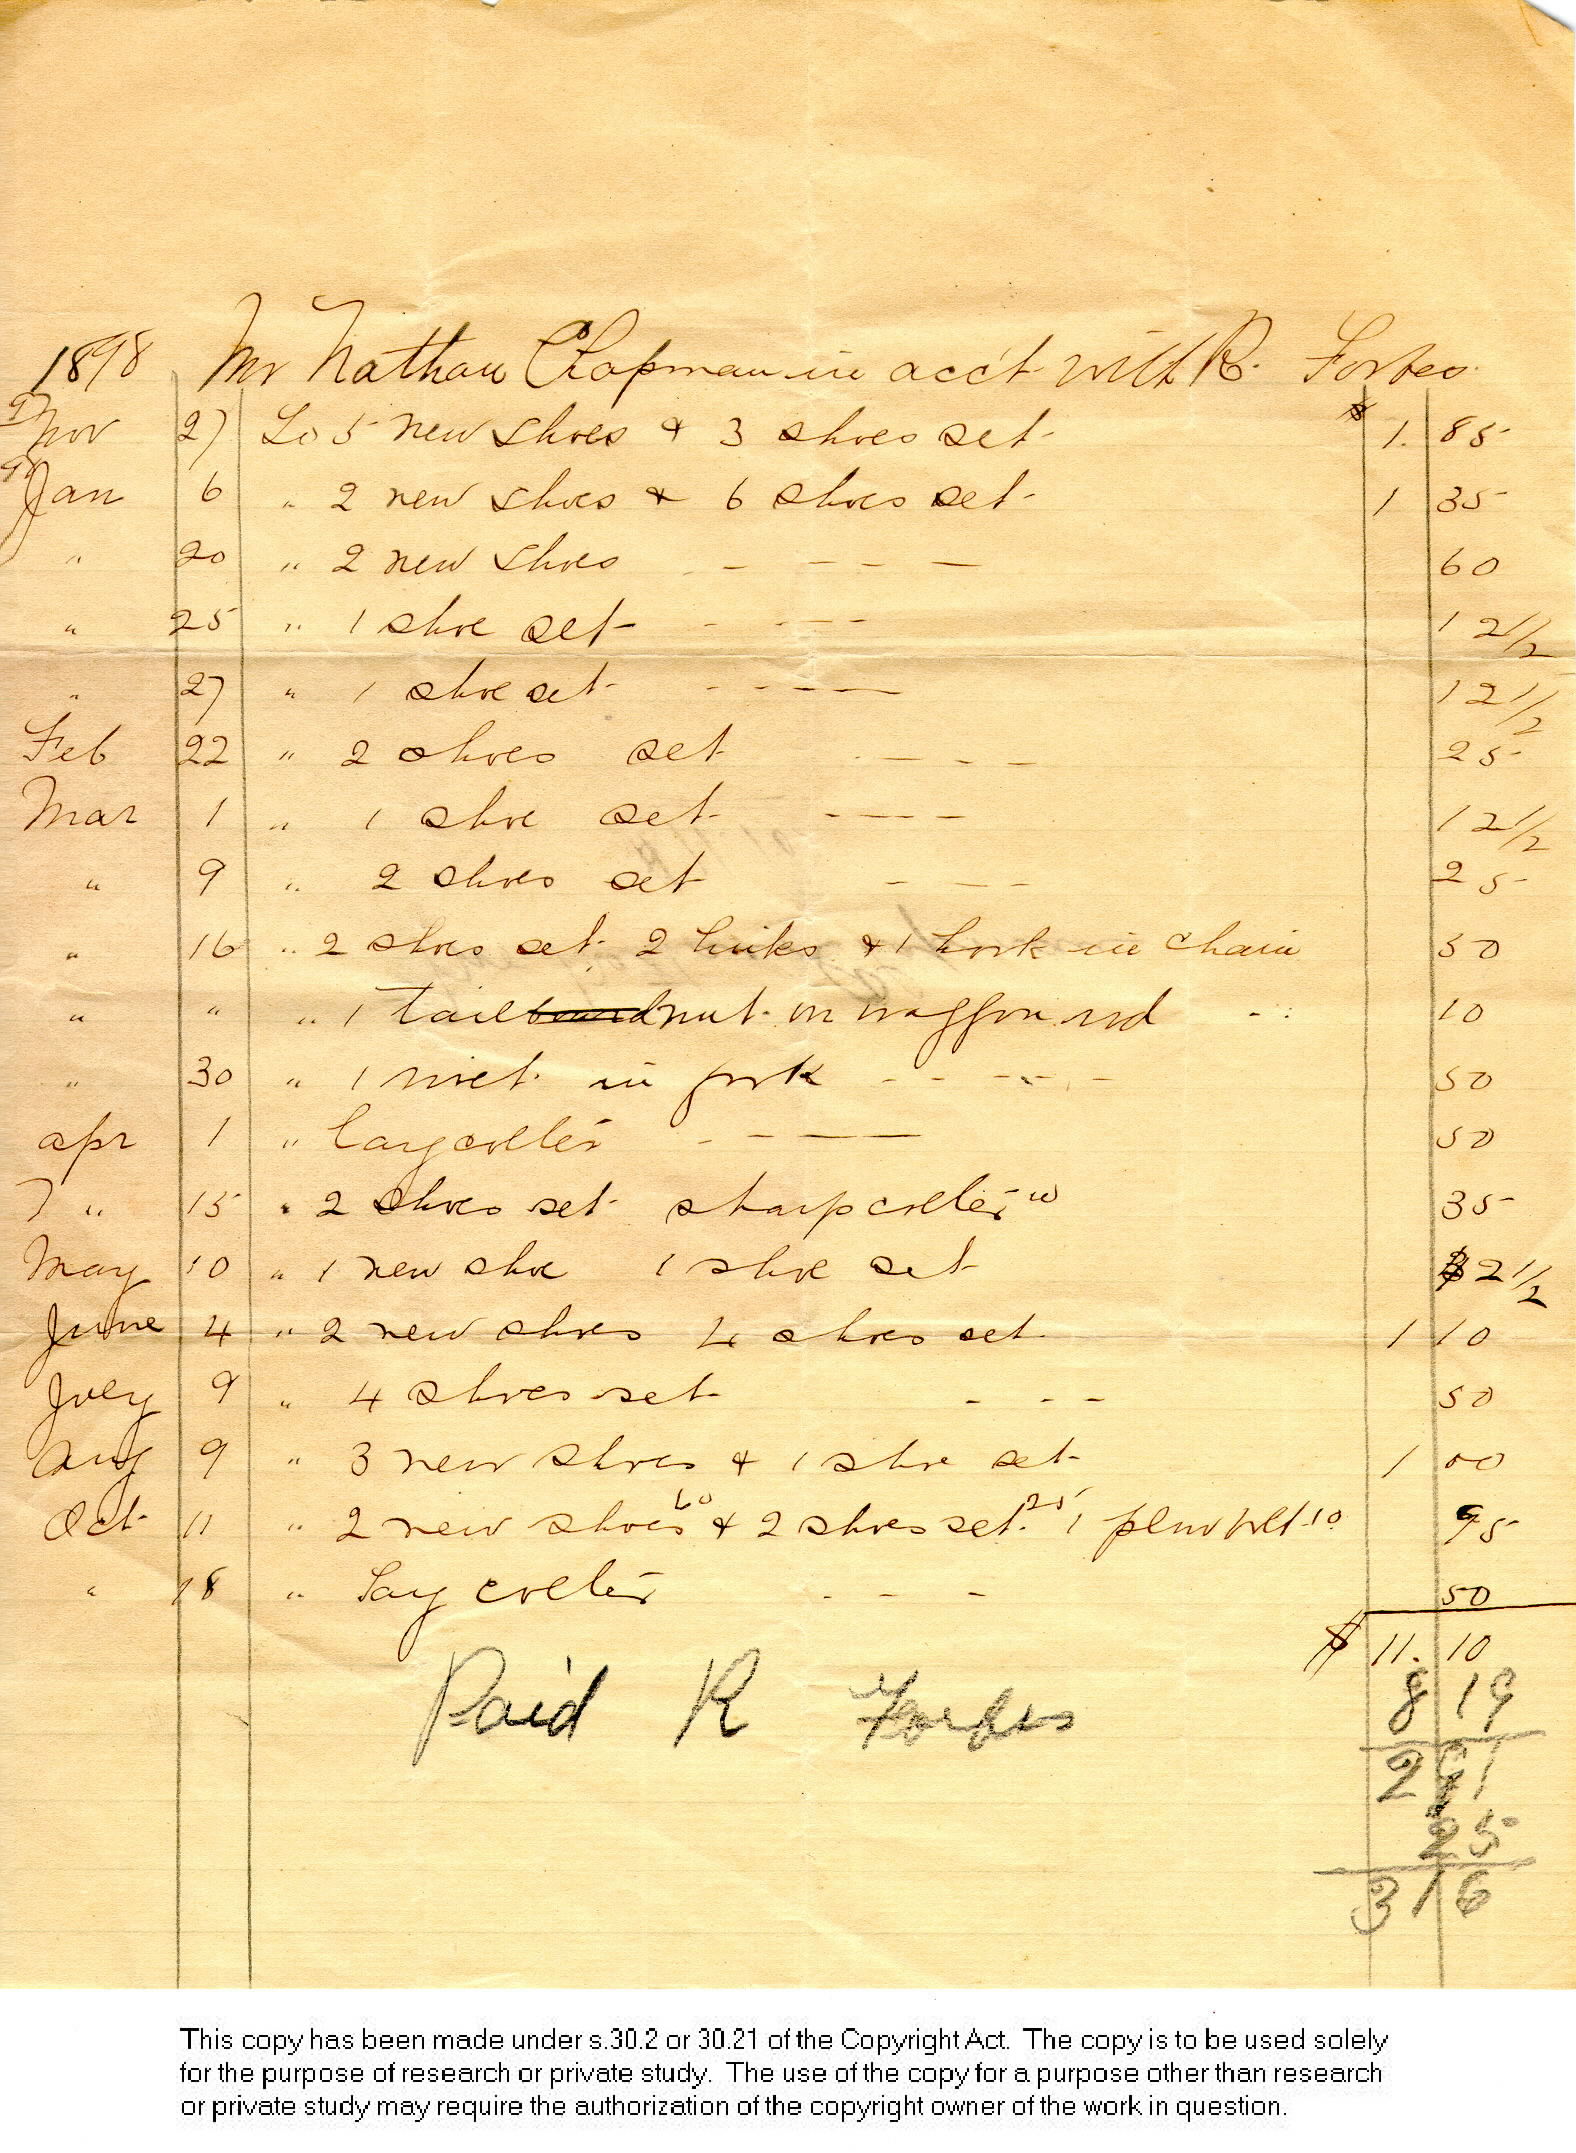 1898 Mr Nathan Chapman in acc't with R. Forbes.
97 Nov 27 To 5 new shoes & 3 shoes set $ 1. 85
98 Jan 6 " 2 new shoes & 6 shoes set 1 35
" 20 " 2 new shoes - - - - - 60
" 25 " 1 shoe set - - - - 12 1/2
" 27 " 1 shoe set - - - - - 12 1/2
Feb 22 " 2 shoes set - - - - 25
Mar 1 " 1 shoe set - - - - 12 1/2
" 9 " 2 shoes set - - - 25
" 16 " 2 shoes set 2 links & 1 hook in chain 50
" " " 1 tail board nut on waggon rod - - 10
" 30 " 1 rivet in fork - - - - - 50
Apr 1 " Lay colter - - - - 50
" 15 " 2 shoes set sharp colter 10 35
May 10 " 1 new shoe 1 shoe set 42 1/2
June 4 " 2 new shoes 4 shoes set 1 10
July 9 " 4 shoes set - - - 50
Aug 9 " 3 new shoes & 1 shoe set 1 00
Oct 11 " 2 new shoes 60 & 2 shoes set 25 1 plow blt 10 95
" 18 " Lay colter - - - 50
$ 11. 10
Paid R Forbes 8 19
2 91
25
3 16
This copy has been made under s.30.2 or 30.21 of the Copyright Act. The copy is to be used solely
for the purpose of research or private study. The use of the copy for a purpose other than research
or private study may require the authorization of the copyright owner of the work in question.